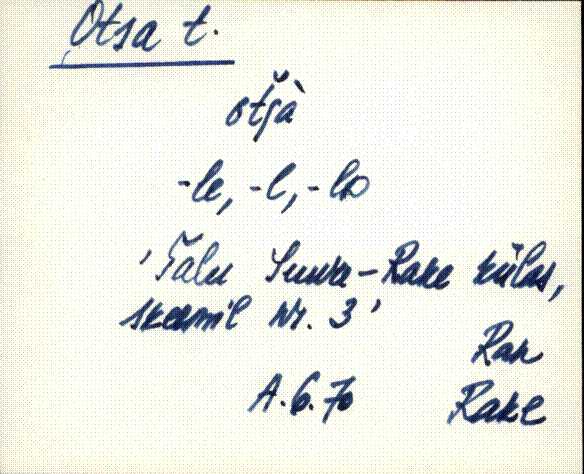 Otsa t.
otsằ
-le, -l, -lᴅ
'Talu Suure-Rake külas,
skeemil Nr. 3'
Ran
A.6.70 Rake